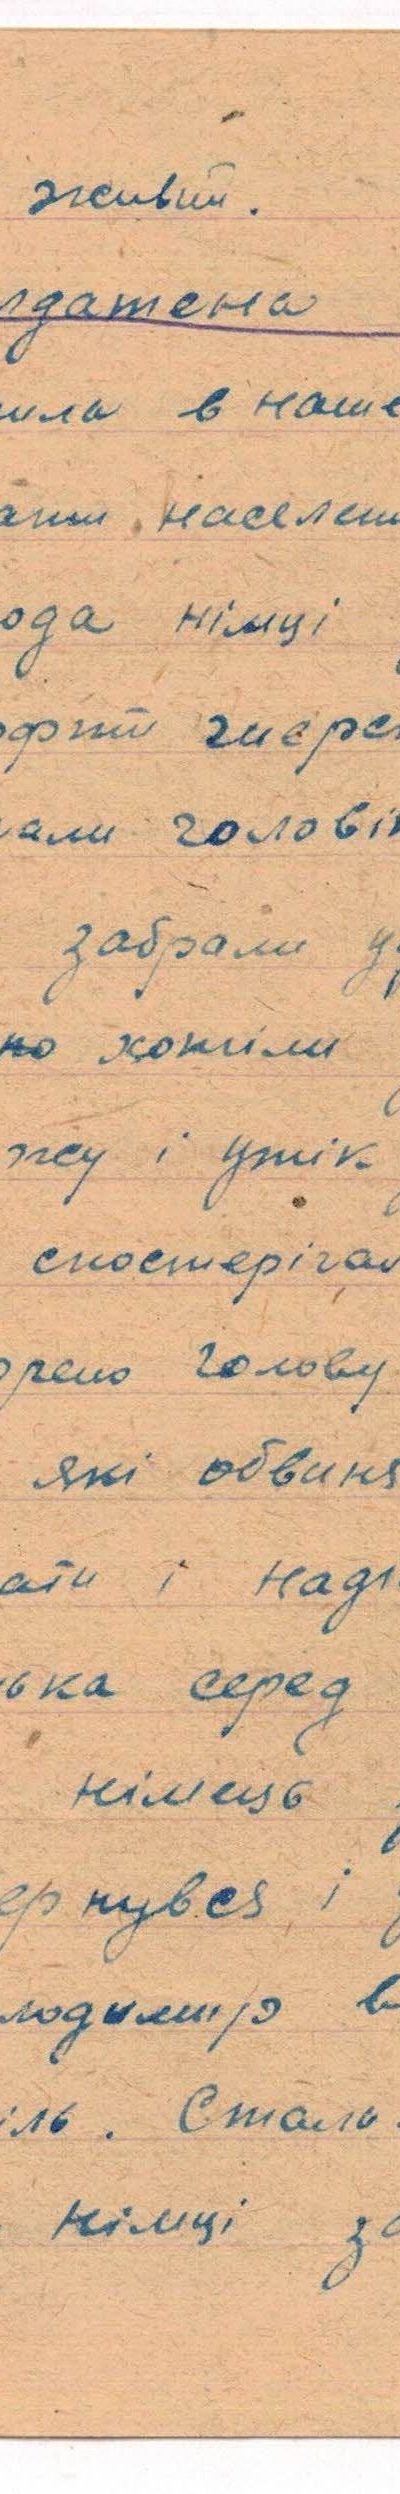 живит.
лдатена
ила в наше
ани населен
ода німці
офит
али голові
забрали
но хотіли
жу і утік
спостеріга
орено голову
які обвиня
ати і над
ька серед
німець
ернувся і
лодимир в
іль. Сталь
німці за